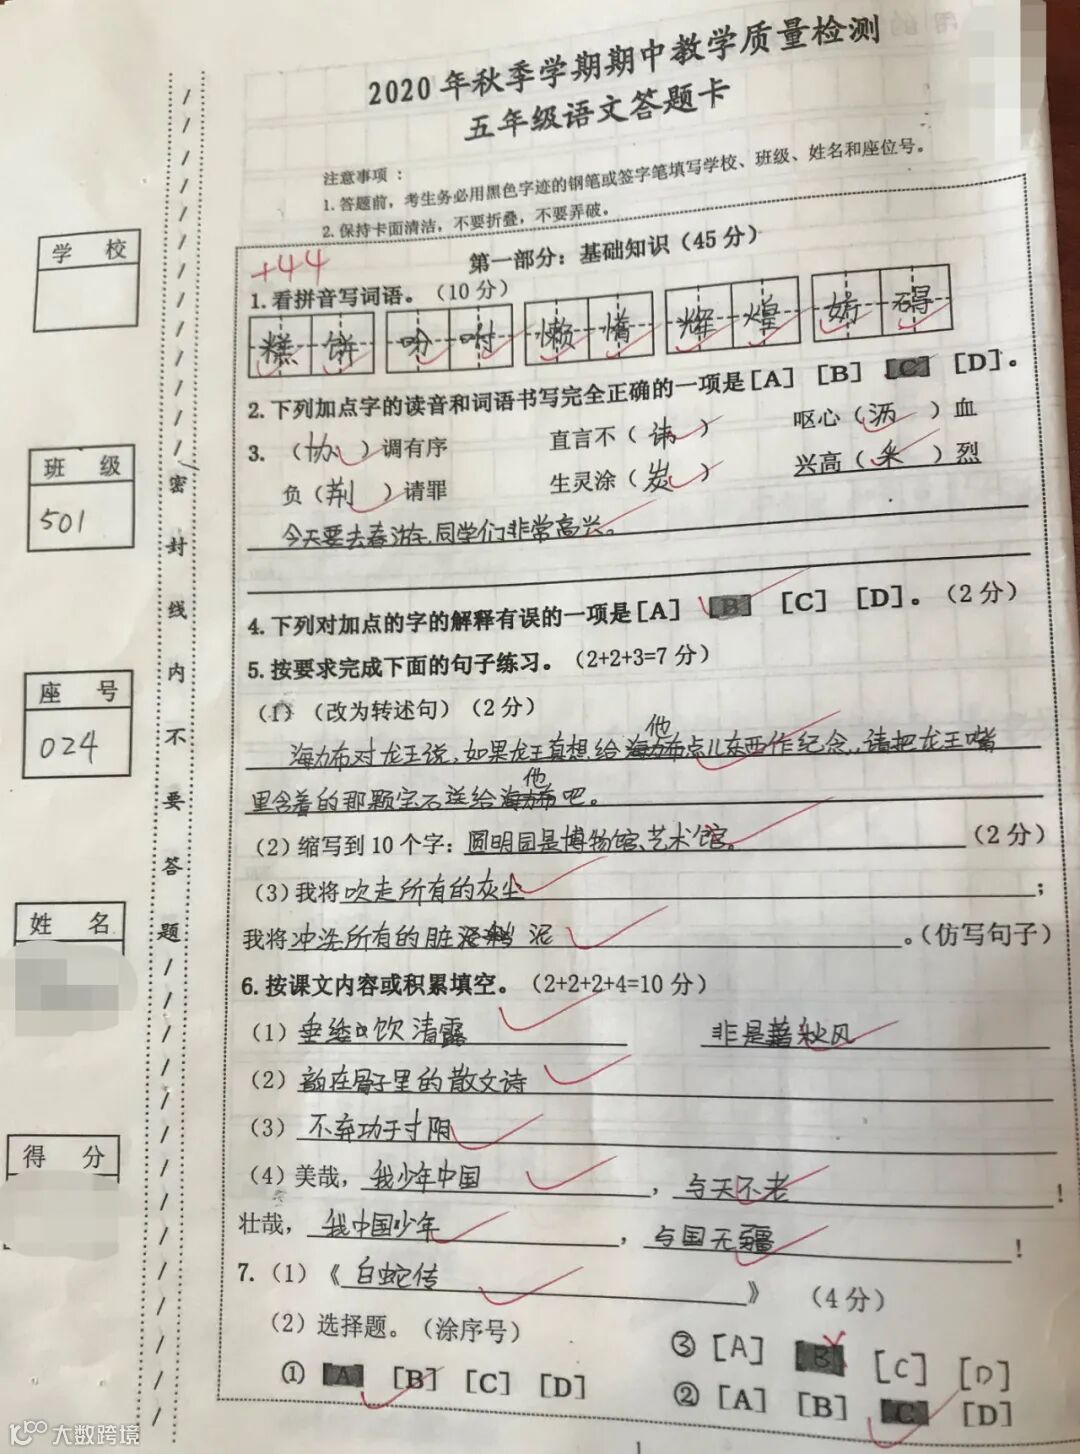 2020年秋季学期期中教学质量检测
五年级语文答题卡
注意事项：
1.答题前，考生务必用黑色字迹的钢笔或签字笔填写学校、班级、姓名和座位号。
2.保持卡面清洁，不要折叠，不要弄破。
学 校
班 级
501
座 号
024
姓 名
得 分
密封线内不要答题
+44
第一部分：基础知识（45分）
1.看拼音写词语。（10分）
糕饼 吩咐 懒惰 辉煌 妨碍
2.下列加点字的读音和词语书写完全正确的一项是[A] [B] [C] [D]。
3.（协）调有序 直言不（讳） 呕心（沥）血
负（荆）请罪 生灵涂（炭） 兴高（采）烈
今天要去春游,同学们非常高兴。
4.下列对加点的字的解释有误的一项是[A] [B] [C] [D]。（2分）
5.按要求完成下面的句子练习。（2+2+3=7分）
(1)（改为转述句）（2分）
海力布对龙王说,如果龙王真想给他点儿东西作纪念,请把龙王嘴
里含着的那颗宝石送给他吧。
(2)缩写到10个字：圆明园是博物馆、艺术馆。（2分）
(3)我将吹走所有的灰尘；
我将冲洗所有的脏泥。（仿写句子）
6.按课文内容或积累填空。（2+2+2+4=10分）
(1)垂緌饮清露 非是藉秋风
(2)韵在骨子里的散文诗
(3)不弃功于寸阴
(4)美哉，我少年中国，与天不老！
壮哉，我中国少年，与国无疆！
7.（1）《白蛇传》（4分）
（2）选择题。（涂序号）
① [A] [B] [C] [D]
③ [A] [B] [C] [D]
② [A] [B] [C] [D]
1
大数跨境